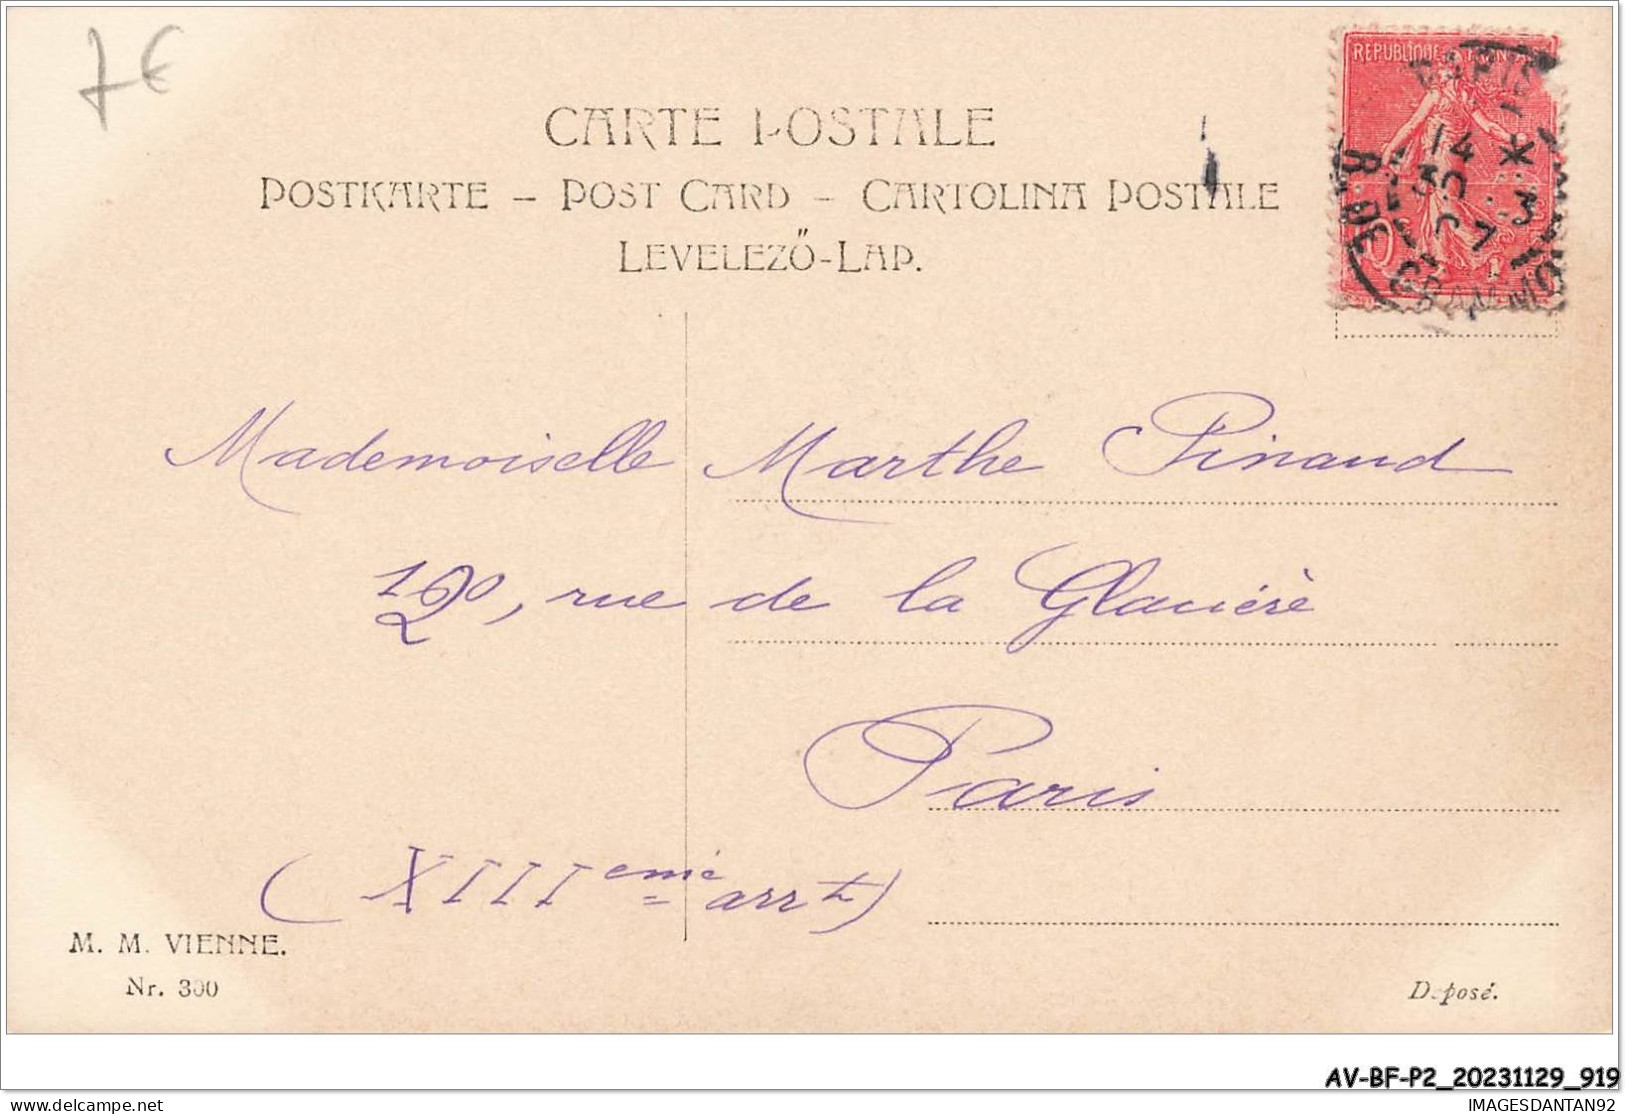 7€
REPUBLIQUE FRANÇAISE
CARTE POSTALE
POSTKARTE – POST CARD – CARTOLINA POSTALE
LEVELEZŐ-LAP.
Mademoiselle Marthe Pinaud
120, rue de la Glacière
Paris
(XIIIeme arrt)
M. M. VIENNE.
Nr. 300
Déposé.
AV-BF-P2_20231129_919
delcampe.net
IMAGESDANTAN92